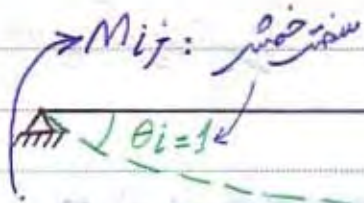 Mij: سختی خمشی
θi=1